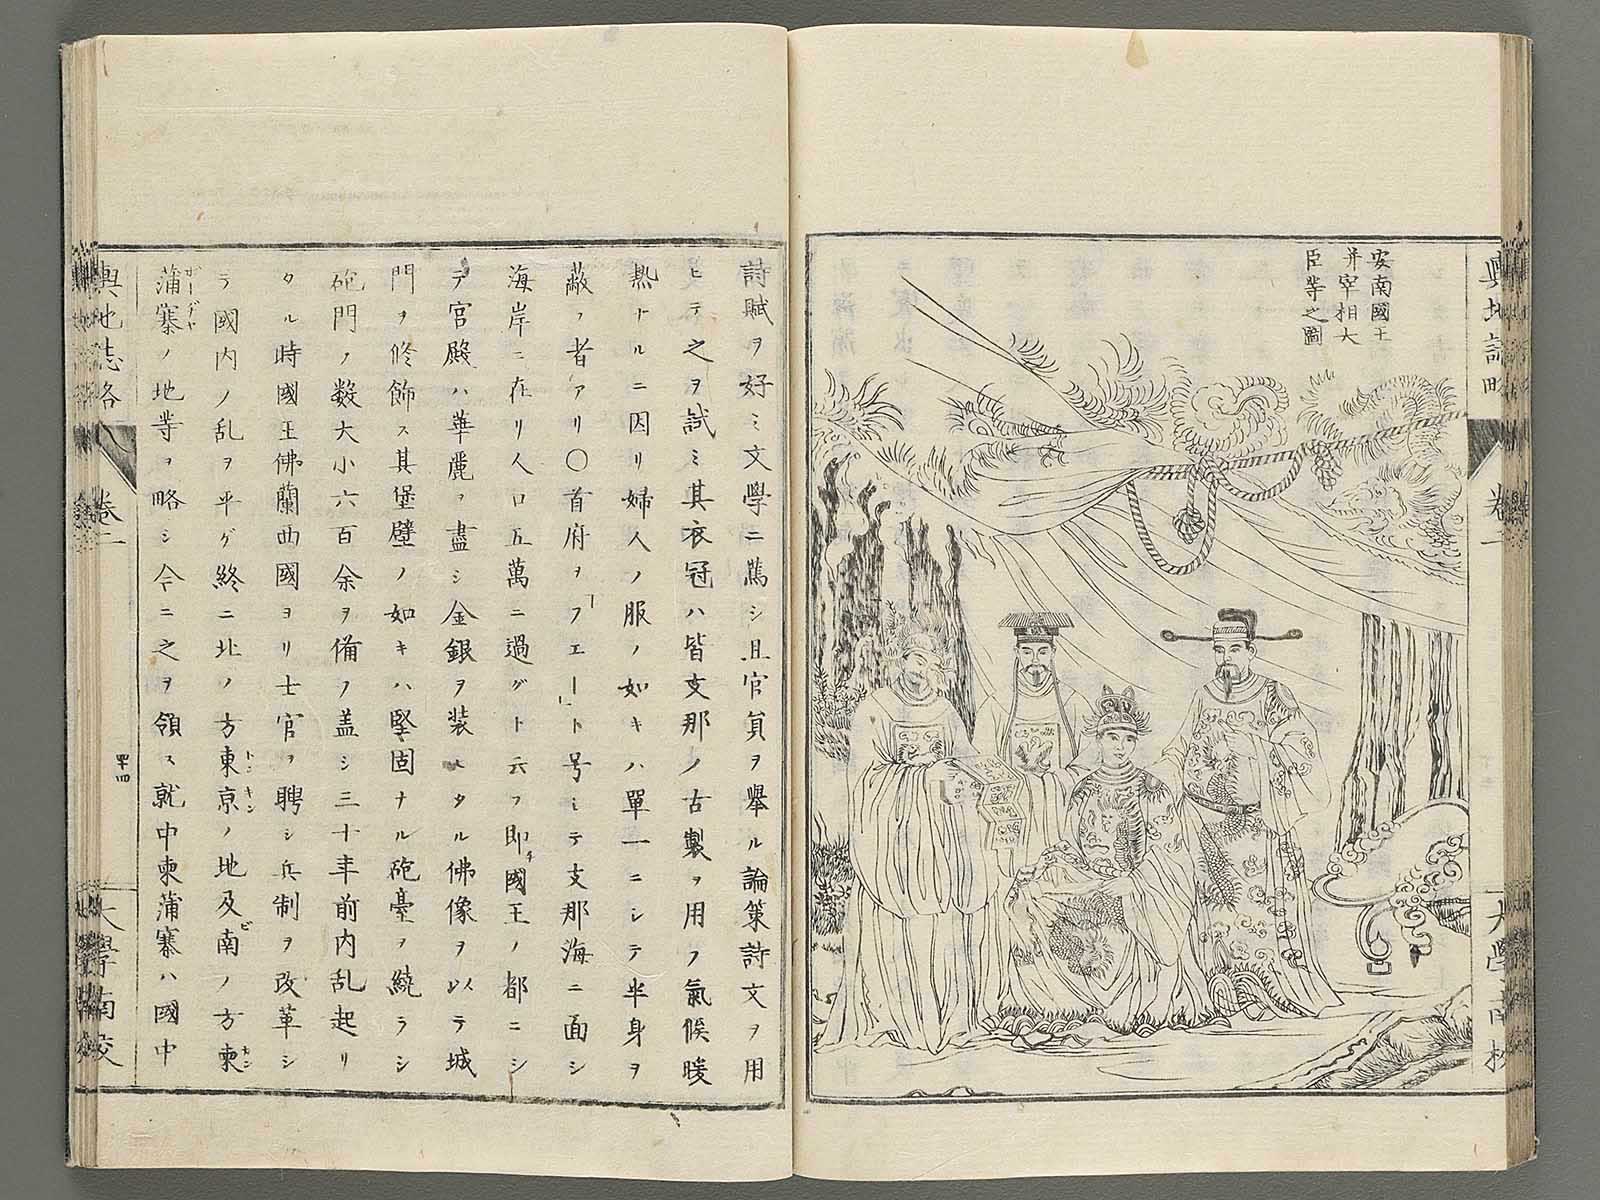 輿地誌略
卷二
大學南校
安南國王
并宰相大
臣等之圖
詩賦ヲ好ミ文學ニ篤シ且官員ヲ擧ル論策詩文ヲ用
ヒテ之ヲ試ミ其衣冠ハ皆支那ノ古製ヲ用フ氣候暖
熱ナルニ因リ婦人ノ服ノ如キハ單一ニシテ半身ヲ
蔽フ者アリ〇首府ヲフエート号ミテ支那海ニ面シ
海岸ニ在リ人口五萬ニ過グト云フ即チ國王ノ都ニシ
テ宮殿ハ華麗ヲ盡シ金銀ヲ装ヒタル佛像ヲ以テ城
門ヲ修飾ス其堡壁ノ如キハ堅固ナル砲臺ヲ繞ラシ
砲門ノ数大小六百余ヲ備フ盖シ三十年前内乱起リ
タル時國王佛蘭西國ヨリ士官ヲ聘シ兵制ヲ改革シ
テ國内ノ乱ヲ平ゲ終ニ北ノ方東京トンキンノ地及ビ南ノ方柬カン
蒲寨ボーヂヤノ地等ヲ略シ今ニ之ヲ領ス就中柬蒲寨ハ國中
輿地誌略
卷二
四十四
大學南校